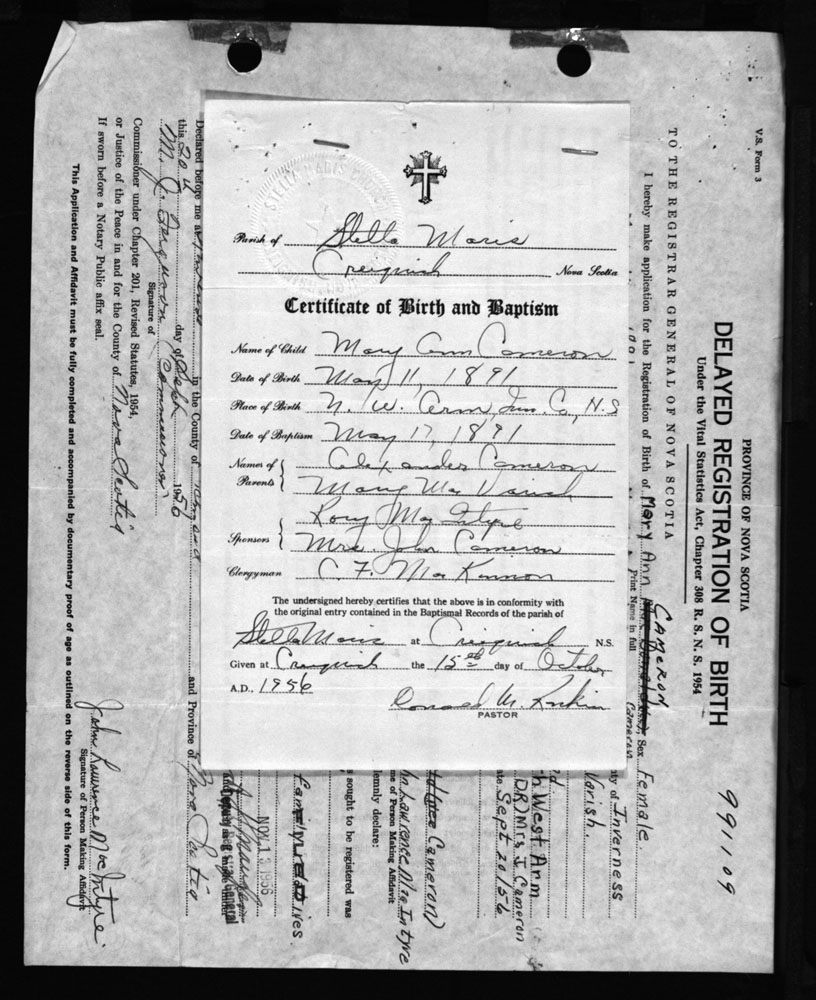 Parish of Stella Maris
Creignish Nova Scotia
Certificate of Birth and Baptism
Name of Child Mary Ann Cameron
Date of Birth May 11, 1891
Place of Birth N. W. Arm, Inv. Co, N.S
Date of Baptism May 17, 1891
Names of Parents Alexander Cameron
Mary Mac Varish
Sponsors Rory Mac Intyre
Mrs. John Cameron
Clergyman C. F. Mac Kinnon
The undersigned hereby certifies that the above is in conformity with
the original entry contained in the Baptismal Records of the parish of
Stella Maris at Creignish N.S.
Given at Creignish the 15th day of October
A.D., 1956
PASTOR
V.S. Form 3
PROVINCE OF NOVA SCOTIA
DELAYED REGISTRATION OF BIRTH
991109
Under the Vital Statistics Act, Chapter 308 R. S. N. S. 1954
TO THE REGISTRAR GENERAL OF NOVA SCOTIA
Cameron
I hereby make application for the Registration of Birth of Mary Ann Sex Female
Print Name in full Cameron
ty of Inverness
Varish.
h West Arm
DR) Mrs J. Cameron
te Sept 20/56
Cameron)
hn Lawrence Mac Intyre
me of Person Making Affidavit
emnly declare:
s sought to be registered was
Family relatives
NOV 13 1956
Deputy Registrar General
Declared before me at in the County of and Province of Nova Scotia
this 20th day of Sept 1956
M. J. Ferguson Commissioner
Signature of
Commissioner under Chapter 201, Revised Statutes, 1954,
or Justice of the Peace in and for the County of Nova Scotia
If sworn before a Notary Public affix seal.
John Lawrence Mac Intyre
Signature of Person Making Affidavit
This Application and Affidavit must be fully completed and accompanied by documentary proof of age as outlined on the reverse side of this form.